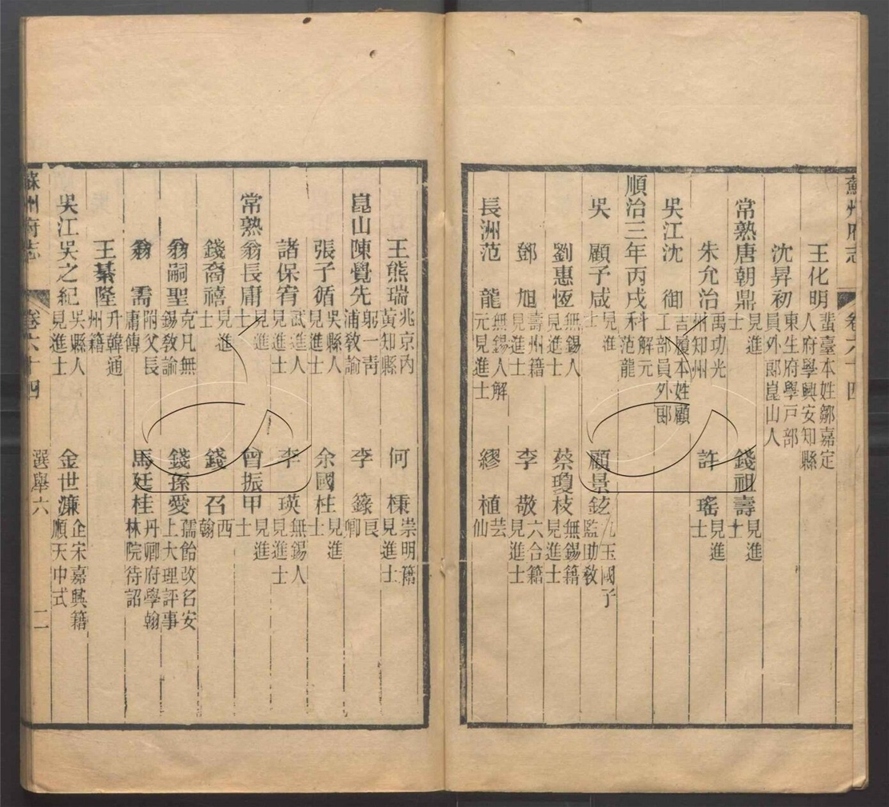 蘇州府志 卷六十四
王化明 蜚臺本姓鄒嘉定人府學興安知縣
沈昇初 東生府學戸部員外郎崑山人
常熟唐朝鼎 見進士 錢祖壽 見進士
朱允治 禹功光州知州 許瑤 見進士
吳江沈御 吉履本姓顧工部員外郎
順治三年丙戌科 解元范龍
吳 顧子咸 見進士 顧景 九玉國子監助教
劉惠恆 無錫人見進士 蔡瓊枝 無錫籍見進士
鄧旭 壽州籍見進士 李敬 六合籍見進士
長洲范龍 無錫人解元見進士 繆植 芸仙
王熊瑞 兆京內黃知縣 何棟 崇明籍見進士
崑山陳覺先 躬一靑浦敎諭 李籙 長卿
張子循 吳縣人見進士 余國柱 見進士
諸保宥 武進人見進士 李瑛 無錫人見進士
常熟翁長庸 見進士 曾振甲 見進士
錢裔禧 見進士 錢召 西翰
翁嗣聖 克凡無錫敎諭 錢孫愛 孺飴改名安上大理評事
翁需 附父長庸傳 馬廷桂 丹卿府學翰林院待詔
王綦隆 升韓通州籍
吳江吳之紀 吳縣人見進士 金世濂 企宋嘉興籍順天中式
蘇州府志 卷六十四 選舉六 二